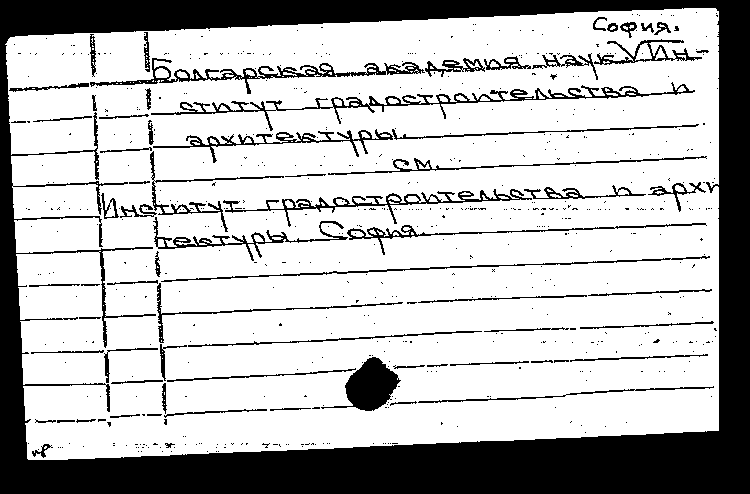 София.
Болгарская академия наук. Ин-
ститут градостроительства и
архитектуры.
см.
Институт градостроительства и архи
тектуры. София.